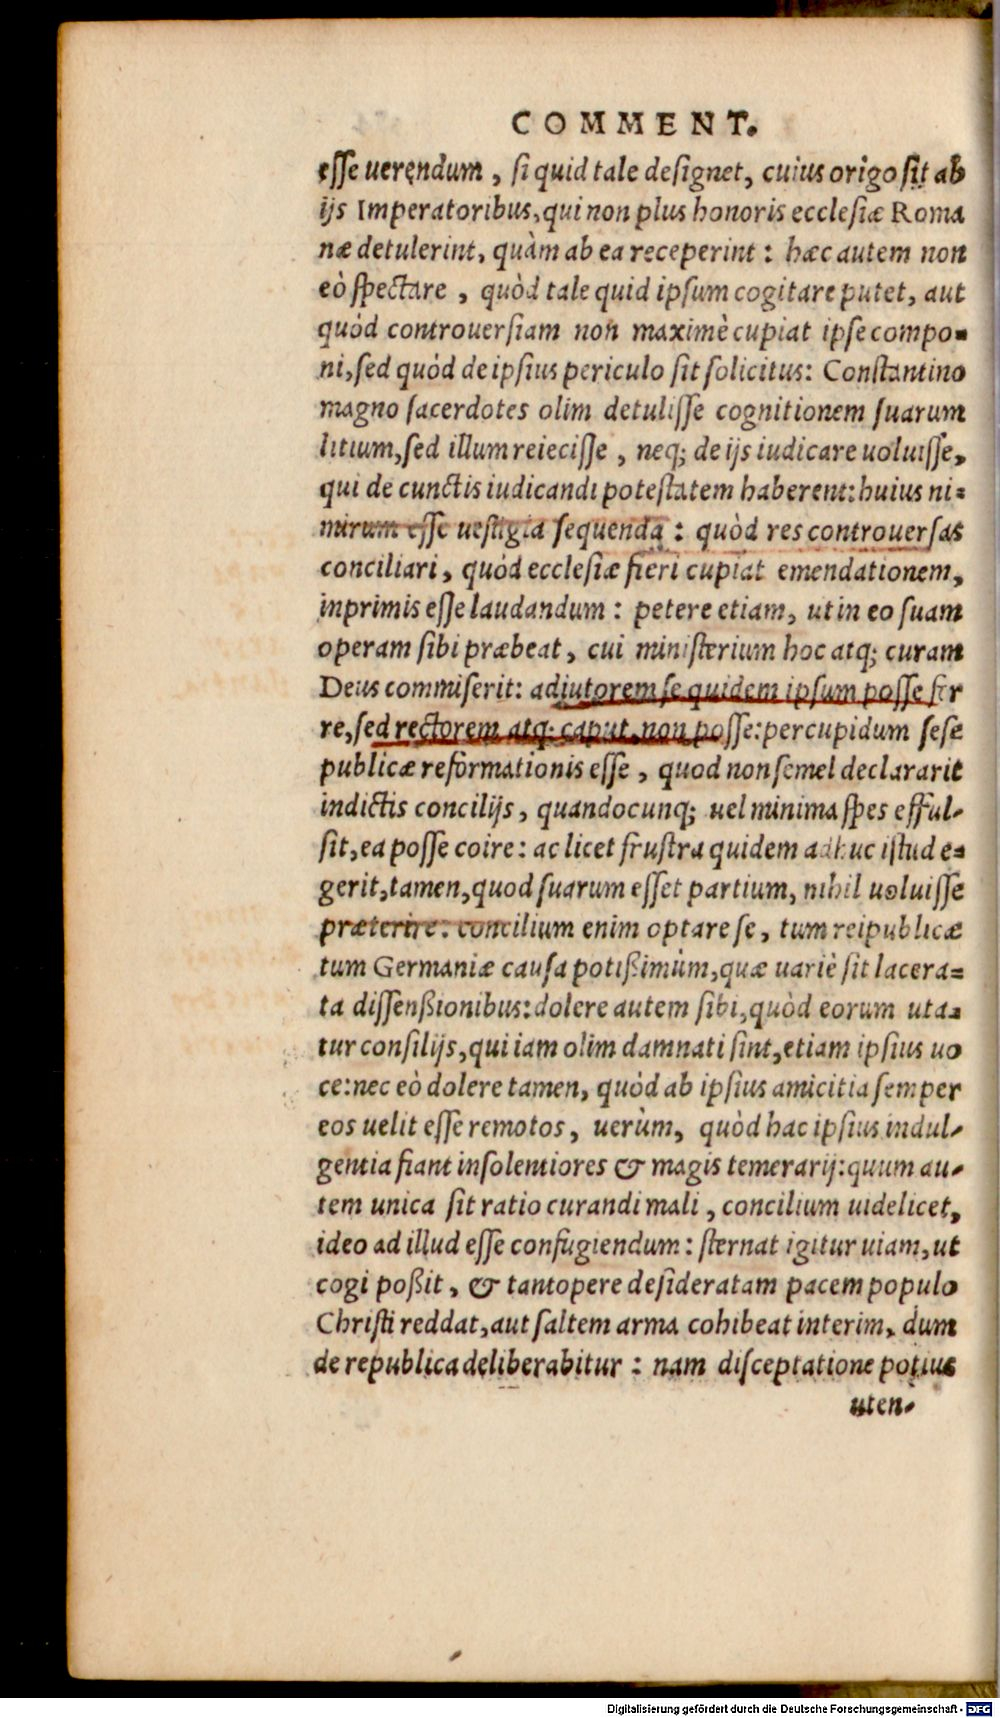 COMMENT.
esse uerendum, si quid tale designet, cuius origo sit ab
ijs Imperatoribus, qui non plus honoris ecclesiæ Roma
næ detulerint, quàm ab ea receperint: hæc autem non
eò spectare, quòd tale quid ipsum cogitare putet, aut
quòd controuersiam non maximè cupiat ipse compo-
ni, sed quòd de ipsius periculo sit solicitus: Constantino
magno sacerdotes olim detulisse cognitionem suarum
litium, sed illum reiecisse, neq; de ijs iudicare uoluisse,
qui de cunctis iudicandi potestatem haberent: huius ni-
mirum esse uestigia sequenda: quòd res controuersas
conciliari, quòd ecclesiæ fieri cupiat emendationem,
inprimis esse laudandum: petere etiam, ut in eo suam
operam sibi præbeat, cui ministerium hoc atq; curam
Deus commiserit: adiutorem se quidem ipsum posse fer
re, sed rectorem atq; caput non posse: percupidum sese
publicæ reformationis esse, quod non semel declararit
indictis concilijs, quandocunq; uel minima spes efful-
sit, ea posse coire: ac licet frustra quidem adhuc istud e-
gerit, tamen, quod suarum esset partium, nihil uoluisse
præterire: concilium enim optare se, tum reipublicæ
tum Germaniæ causa potißimùm, quæ uariè sit lacera-
ta dissenßionibus: dolere autem sibi, quòd eorum uta-
tur consilijs, qui iam olim damnati sint, etiam ipsius uo
ce: nec eò dolere tamen, quòd ab ipsius amicitia semper
eos uelit esse remotos, uerùm, quòd hac ipsius indul-
gentia fiant insolentiores & magis temerarij: quum au-
tem unica sit ratio curandi mali, concilium uidelicet,
ideo ad illud esse confugiendum: sternat igitur uiam, ut
cogi poßit, & tantopere desideratam pacem populo
Christi reddat, aut saltem arma cohibeat interim, dum
de republica deliberabitur: nam disceptatione potius
uten-
Digitalisierung gefördert durch die Deutsche Forschungsgemeinschaft - DFG